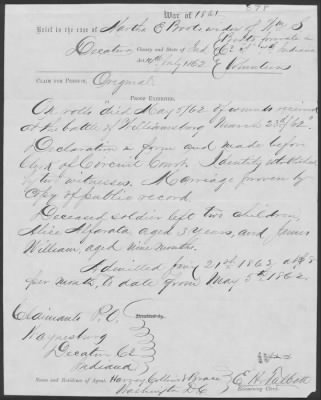 War of 1861
Brief in the case of Martha E Boots widow of Wm F
Boots, private in
Decatur County and State of Ind
July 1862 Volunteers
CLAIM FOR PENSION. Original
PROOF EXHIBITED.
On rolls "died May 5/62 of wounds received
at the battle of Williamsburg March 23d/62"
Declaration in form and made before
Clerk of Circuit Court. Identity established
by two witnesses. Marriage proven by
copy of public record
Deceased soldier left two children,
Alice Alforata, aged 3 years, and James
William, aged nine months.
Admitted Jany 21st 1863 at $8
per month, to date from May 5th 1862.
Claimants P.O.
Waynesburg
Decatur Co
Indiana
Name and Residence of Agent. Harvey Collins & Brace
Washington D.C.
E. H. Talbott
Examining Clerk.